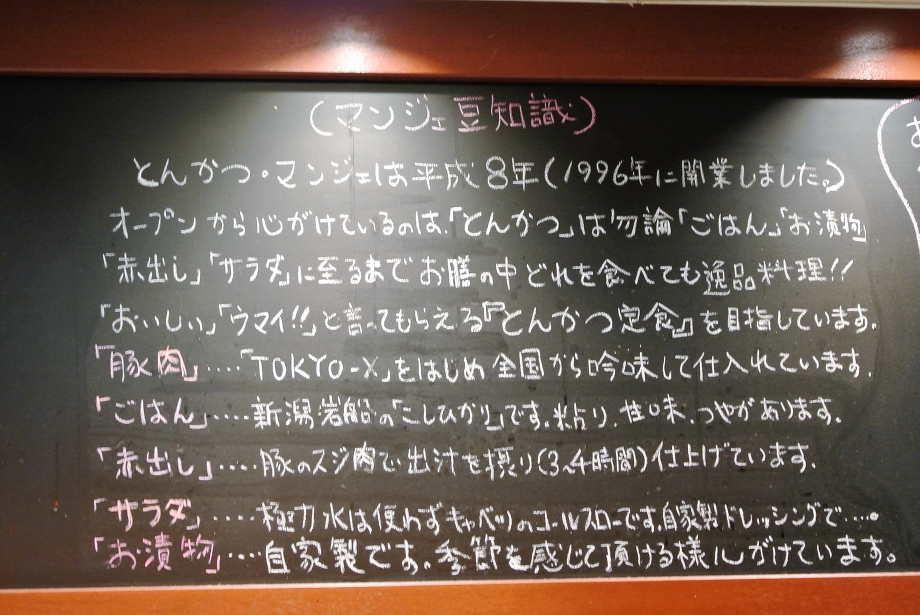 (マンジェ豆知識)
とんかつ・マンジェは平成8年(1996年に開業しました。)
オープンから心がけているのは、「とんかつ」は勿論「ごはん」「お漬物」
「赤出し」「サラダ」に至るまでお膳の中どれを食べても逸品料理!!
「おいしい」「ウマイ!!」と言ってもらえる『とんかつ定食』を目指しています。
「豚肉」‥‥「TOKYO-X」をはじめ全国から吟味して仕入れています。
「ごはん」‥‥‥新潟岩船の「こしひかり」です。粘り、甘味、つやがあります。
「赤出し」‥‥豚のスジ肉で出汁を摂り(3、4時間)仕上げています。
「サラダ」‥‥‥極力水は使わずキャベツのコールスローです。自家製ドレッシングで‥‥。
「お漬物」‥‥自家製です。季節を感じて頂ける様心がけています。